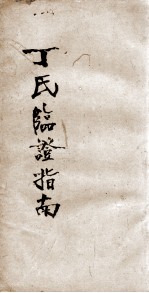 丁氏臨證指南